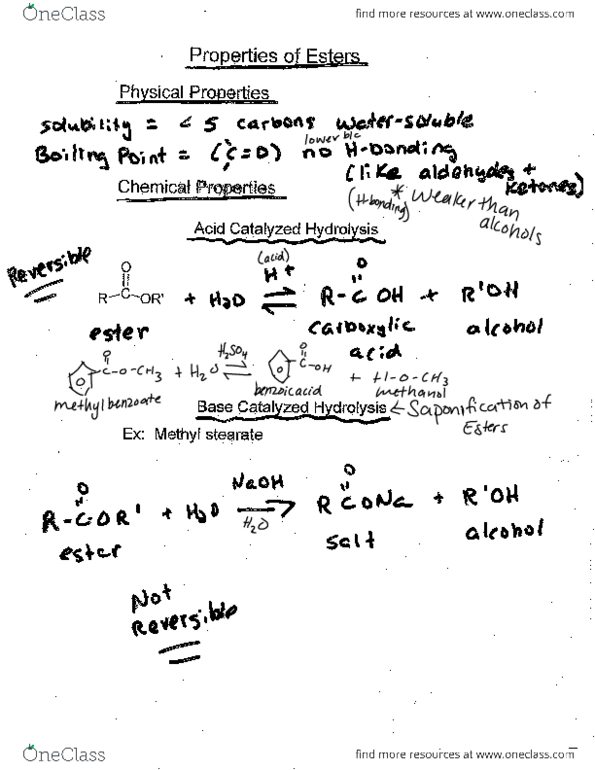 OneClass
find more resources at www.oneclass.com
Properties of Esters
Physical Properties
solubility = < 5 carbons water-soluble
Boiling Point = (C=O) lower b/c no H-bonding
(like aldehydes + ketones)
Chemical Properties
(H-bonding) * Weaker than alcohols
Acid Catalyzed Hydrolysis
Reversible
(acid)
O O
R-C-OR' + H2O H+ ⇌ R-C OH + R'OH
ester carboxylic acid alcohol
O H2SO4 O
C-O-CH3 + H2O ⇌ C-OH + H-O-CH3
methylbenzoate benzoic acid methanol
Base Catalyzed Hydrolysis ← Saponification of Esters
Ex: Methyl stearate
O NaOH O
R-C-OR' + H2O → R C ONa + R'OH
H2O
ester salt alcohol
Not
Reversible
OneClass
find more resources at www.oneclass.com